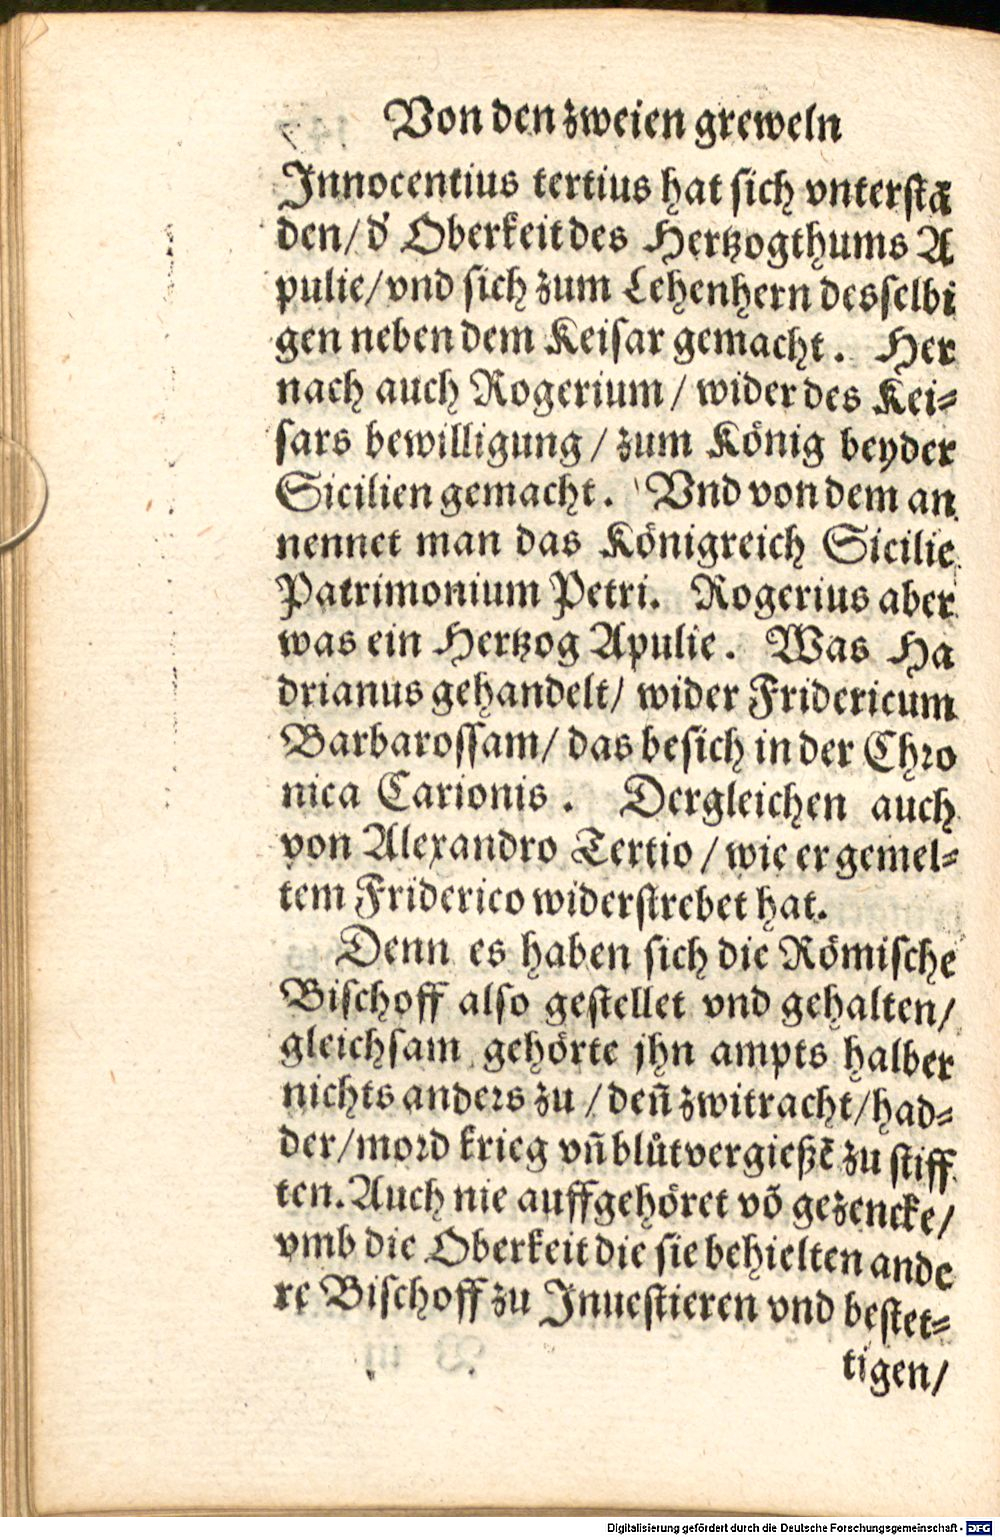 Von den zweien greweln
Innocentius tertius hat sich vnterstā
den/ d' Oberkeit des Hertzogthums A
pulie/ vnd sich zum Lehenhern desselbi
gen neben dem Keisar gemacht. Her
nach auch Rogerium / wider des Kei-
sars bewilligung / zum König beyder
Sicilien gemacht. Vnd von dem an
nennet man das Königreich Sicilie
Patrimonium Petri. Rogerius aber
was ein Hertzog Apulie. Was Ha
drianus gehandelt/ wider Fridericum
Barbarossam/ das besich in der Chro
nica Carionis. Dergleichen auch
von Alexandro Tertio / wie er gemel-
tem Friderico widerstrebet hat.
Denn es haben sich die Römische
Bischoff also gestellet vnd gehalten/
gleichsam gehörte jhn ampts halber
nichts anders zu / deñ zwitracht/ had-
der/ mord krieg vñ blůtvergießē zu stiff
ten. Auch nie auffgehöret vō gezencke/
vmb die Oberkeit die sie behielten ande
re Bischoff zu Inuestieren vnd bestet-
tigen/
Digitalisierung gefördert durch die Deutsche Forschungsgemeinschaft - DFG